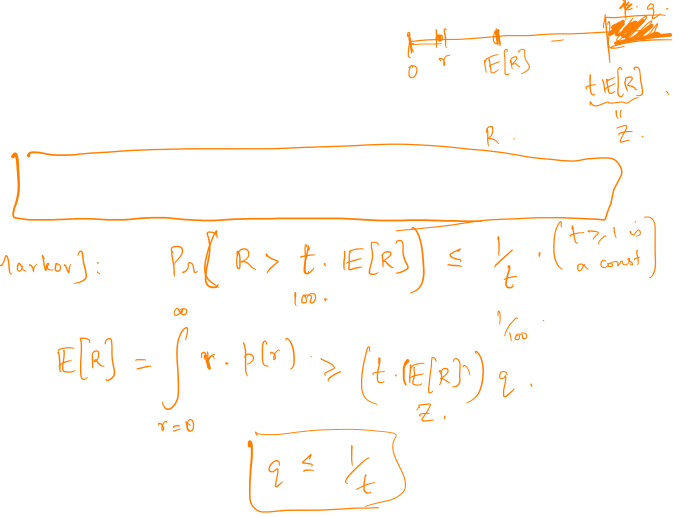 q.
0 r E[R] t E[R]
=
Z.
R.
Markov]: Pr[ R > t. E[R] ] ≤ 1/t . ( t ≥ 1 is a const )
100.
1/100
E[R] = ∫_{r=0}^{∞} r. p(r) . ≥ (t.(E[R]) q.
Z.
q ≤ 1/t